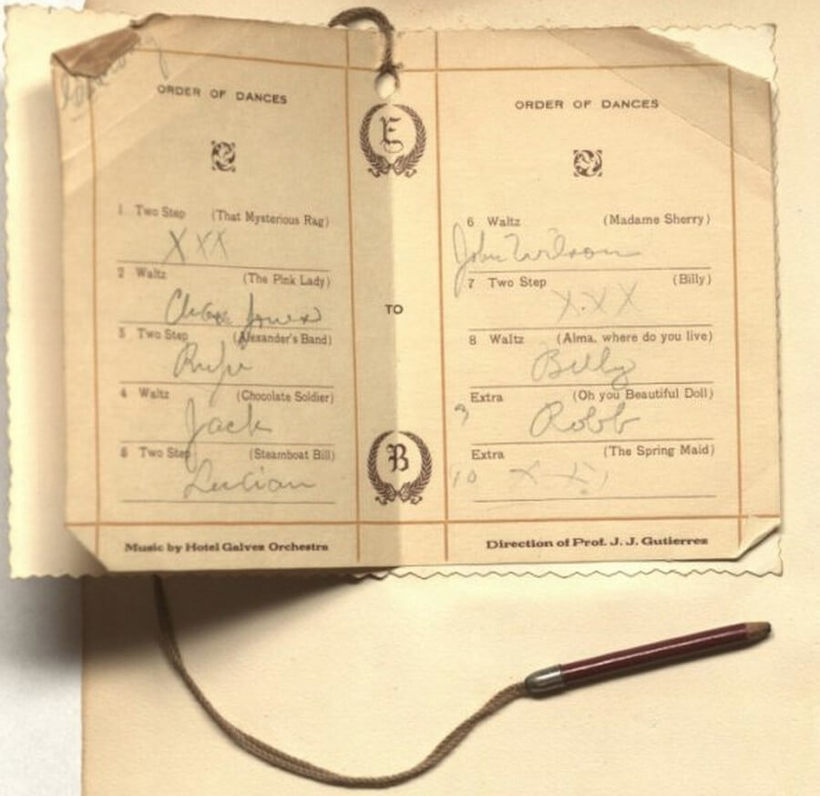 ORDER OF DANCES
1 Two Step (That Mysterious Rag)
XXX
2 Waltz (The Pink Lady)
Jones
3 Two Step (Alexander's Band)
4 Waltz (Chocolate Soldier)
Jack
5 Two Step (Steamboat Bill)
Lucian
Music by Hotel Galvez Orchestra
E
TO
B
ORDER OF DANCES
6 Waltz (Madame Sherry)
John Wilson
7 Two Step (Billy)
X.XX
8 Waltz (Alma, where do you live)
Billy
9 Extra (Oh you Beautiful Doll)
Robb
10 Extra (The Spring Maid)
Direction of Prof. J. J. Gutierrez